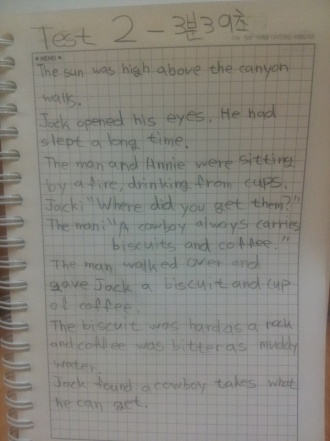 Test 2 - 3분39초
MEMO
The sun was high above the canyon
walls.
Jack opened his eyes. He had
slept a long time.
The man and Annie were sitting
by a fire, drinking from cups.
Jack: "Where did you get them?"
The man: "A cowboy always carries
biscuits and coffee."
The man walked over and
gave Jack a biscuit and cup
of coffee.
The biscuit was hard as a rock
and coffee was bitter as muddy
water.
Jack found a cowboy takes what
he can get.